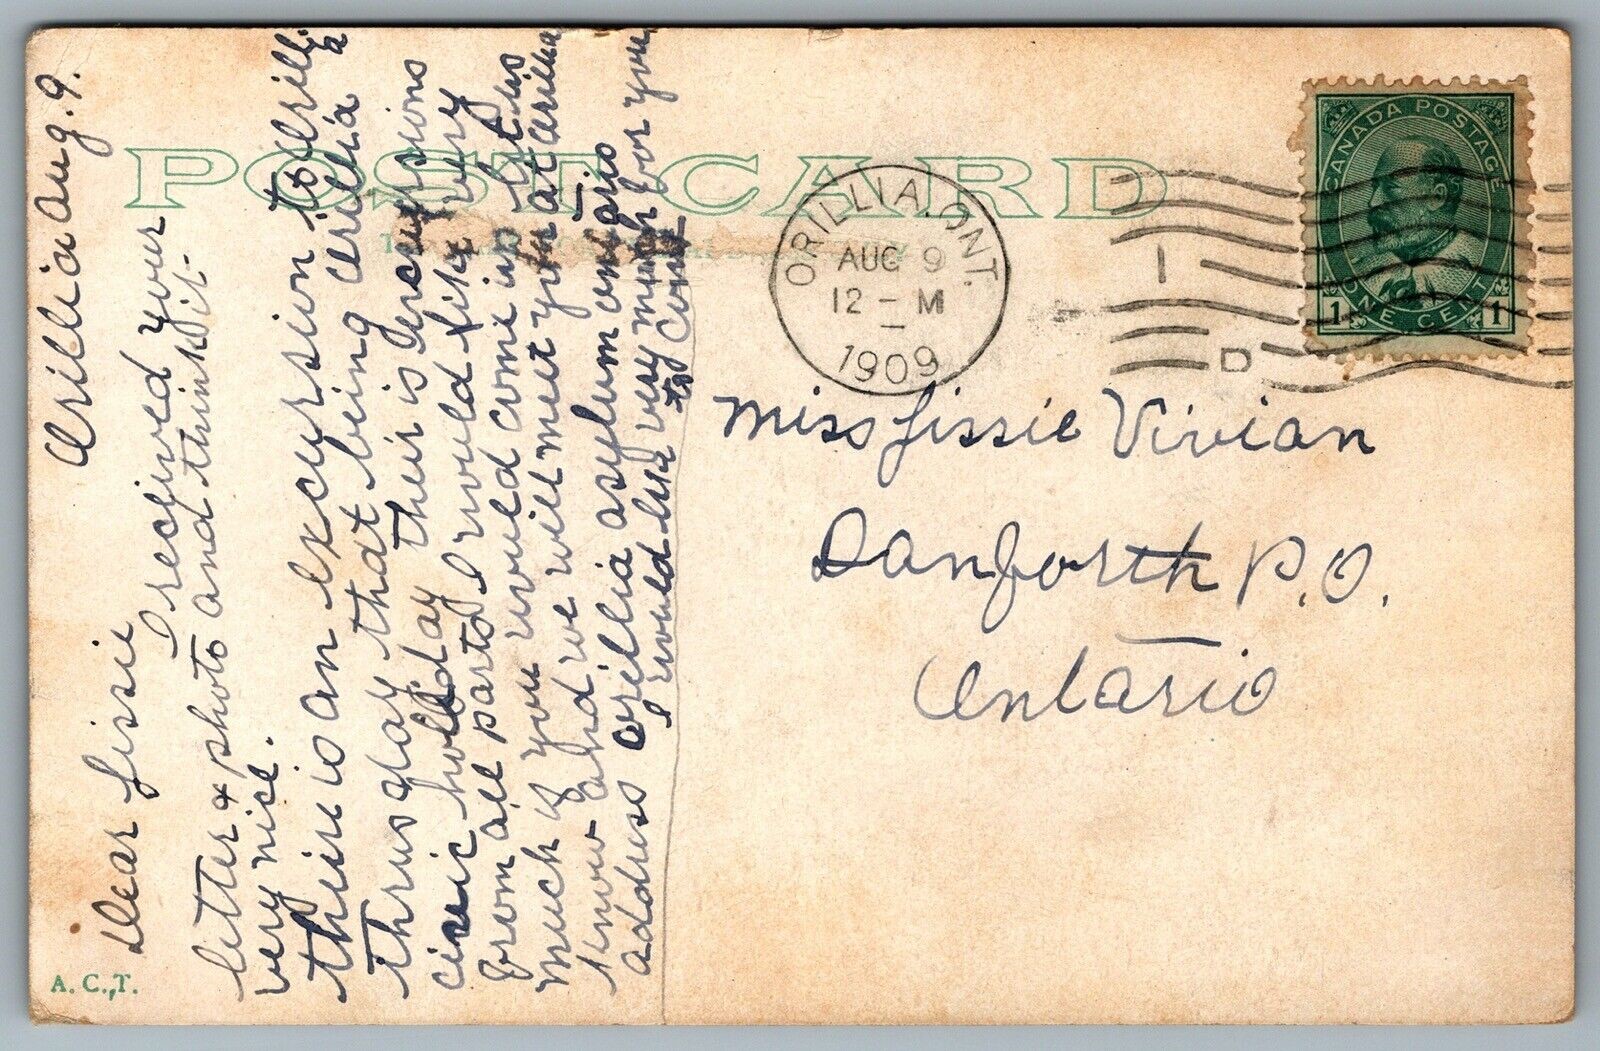 POST CARD
ORILLIA, ONT.
AUG 9
12 - M
1909
1
D
CANADA POSTAGE
1 ONE CENT 1
Miss Lissie Vivian
Danforth P.O.
Ontario
Orillia Aug. 9.
Dear Lissie
I received your
letter & photo and think it
very nice.
their is an excursion to Orillia
Thursday that being Orillia a
civic holliday their is excursions
from all parts I would like very
much if you would come up let us
know and we will meet you at Orillia
address Orillia asylum Ontario
I would like very much for you
to come
A. C. T.